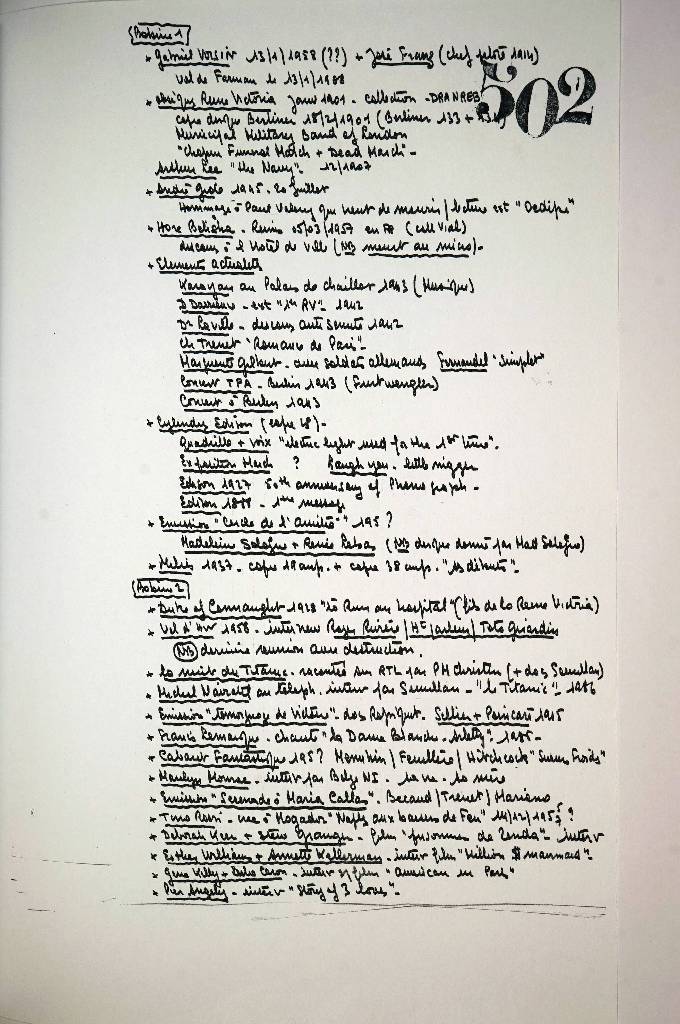 Bobine 1
* Gabriel Voisin 13/1/1958 (??) + José Franz (chef pilote 1914)
vol de Farman le 13/1/1908
502
* Reine Victoria 1901 - collection -DRANREB
copie disque Berliner 18/2/1901 (Berliner 133 +
Municipal Military Band of London
"Chopin Funeral March + Dead March" -
Arthur Lee "the Navy" 12/1907
* André Gide 1945. 20 Juillet
Hommage à Paul Valery qui vient de mourir / lecture ext "Oedipe"
* Hore Belisha - Reims 05/03/1957 en FR (coll Vial)
discours à l'Hotel de Ville (NB meurt au micro)-
* Elements actualités
Karajan au Palais de chaillot 1943 (Musique)
D Darrieux - ext "1er RV" 1942
Dr Laville - discours anti 1942
Ch Trenet "Romance de Paris"-
Marguerite Gilbert - avec soldats allemands Fernandel "Simplet"
Concert TPA - Berlin 1943 (Furtwangler)
Concert à Berlin 1943
* Cylindres Edison (copie 78)-
Quadrille + voix "electric light used for the 1st time".
Exposition March ? Laugh you. little nigger
Edison 1927 50th anniversary of Phonograph -
Edison 1888 - 1er message
* Emission "Cercle de l'amitié" 195 ?
Madeleine Sologne + Renée Lebas (NB disque donné par Mad Sologne)
* Melies 1937 - copie 19cmps. + copie 38 cmps. "ses débuts"-
Bobine 2
* Duke of Connaught 1928 "Le Rum au hospital" (fils de la Reine Victoria)
* Vel d'Hiv 1958 - interview Roger Rivière / / Toto Grardin
(NB) dernière réunion avant destruction.
* La nuit du Titanic - racontée sur RTL par PM Christin (+ dos Semullan)
* Michel Navratil au téléph. interv par Semullan - "le Titanic" - 1986
* Emission "temoignage de Victoire" - dos Sellier + Poincaré 1915
* Francis Lemarque - chante "la Dame Blanche. Arletty" 1985 -
* Cabaret Fantastique 195? Menuhin / Feuillère / Hitchcock "Sueurs Froides"
* Marilyn Monroe - interv par Belge NI - sa vie - sa mère
* Emission "Serenade à Maria Callas" - Becaud / Trenet / Mariano
* Tino Rossi - vee à Mogador "Naples aux baisers de Feu" 14/12/1957 ?
* Deborah Kerr + Stew Granger - film "prisonnier de Zenda" - interv
* Esther Williams + Annette Kellerman - interv film "Million $ mermaid"-
* Gene Kelly + Leslie Caron - interv film "American in Paris"
* Pier Angeli - interv "Story of 3 loves"-